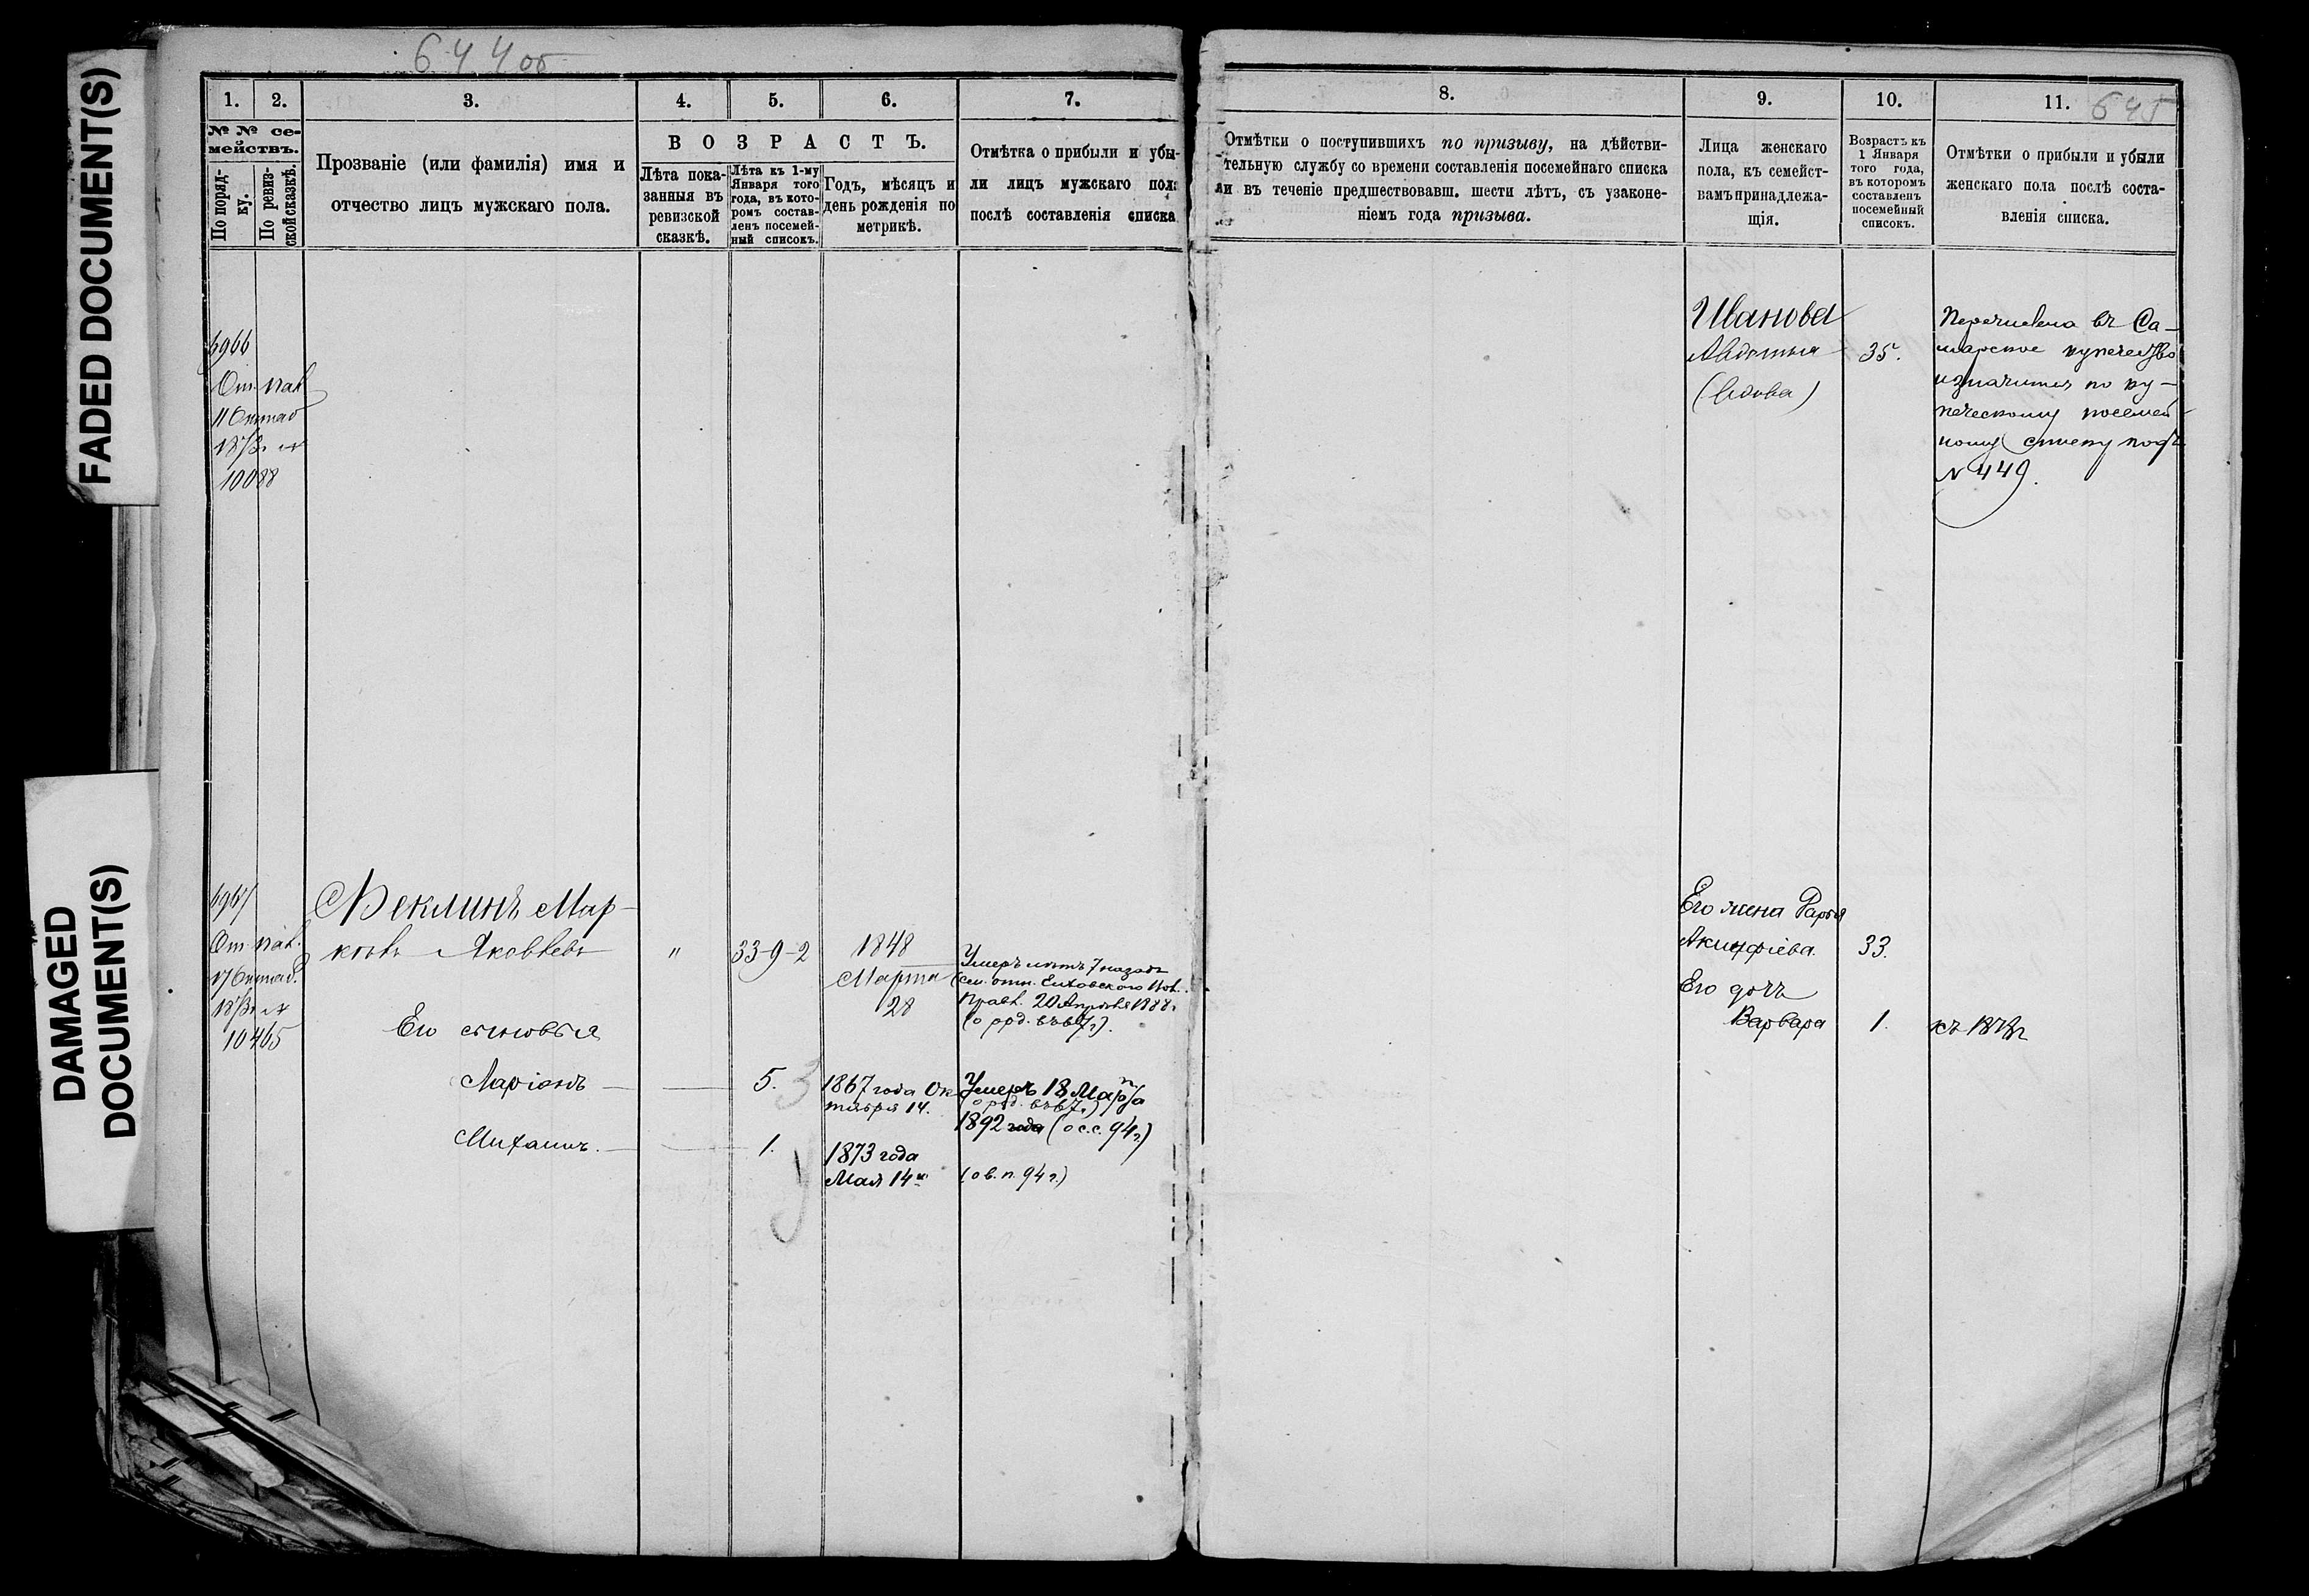 FADED DOCUMENT(S)
DAMAGED
DOCUMENT(S)
644 об
1.
2.
3.
4.
5.
6.
7.
№ № се-
мействъ.
По поряд-
ку.
По ревиз-
ской сказкѣ.
Прозваніе (или фамилія) имя и
отчество лицъ мужскаго пола.
ВОЗРАСТЪ.
Лѣта пока-
занныя въ
ревизской
сказкѣ.
Лѣта къ 1-му
Января того
года, въ кото-
ромъ состав-
ленъ посемей-
ный списокъ.
Годъ, мѣсяцъ и
день рожденія по
метрикѣ.
Отмѣтка о прибыли и убы-
ли лицъ мужскаго пола
послѣ составленія списка
6966
10088
6967
10465
Марта
Яковлевъ
"
33-9-2
1848
Марта
28
Умеръ лѣтъ 7 назадъ
20 Апрѣля 1888г.
Его сыновья
Ларіонъ
5.
3
1867 года Ок
тября 14.
Умеръ 18 Марта
1892 года (о с.с. 94г.)
Михаилъ.
1.
1873 года
Мая 14
(о в. п. 94 г.)
8.
9.
10.
11.
645
Отмѣтки о поступившихъ по призыву, на дѣйстви-
тельную службу со времени составленія посемейнаго списка
ли въ теченіе предшествовавш. шести лѣтъ, съ узаконе-
ніемъ года призыва.
Лица женскаго
пола, къ семейст-
вамъ принадлежа-
щія.
Возрастъ къ
1 Января
того года,
въ которомъ
составленъ
посемейный
списокъ.
Отмѣтки о прибыли и убыли
женскаго пола послѣ соста-
вленія списка.
Иванова
Авдотья
(вдова)
35.
Перечислена въ Са-
марское купечество
и значится по ку-
печескому посемей
ному списку подъ
№ 449.
Его жена Дарья
Акинфіева.
33.
Его дочь
Варвара
1.
къ 1878г